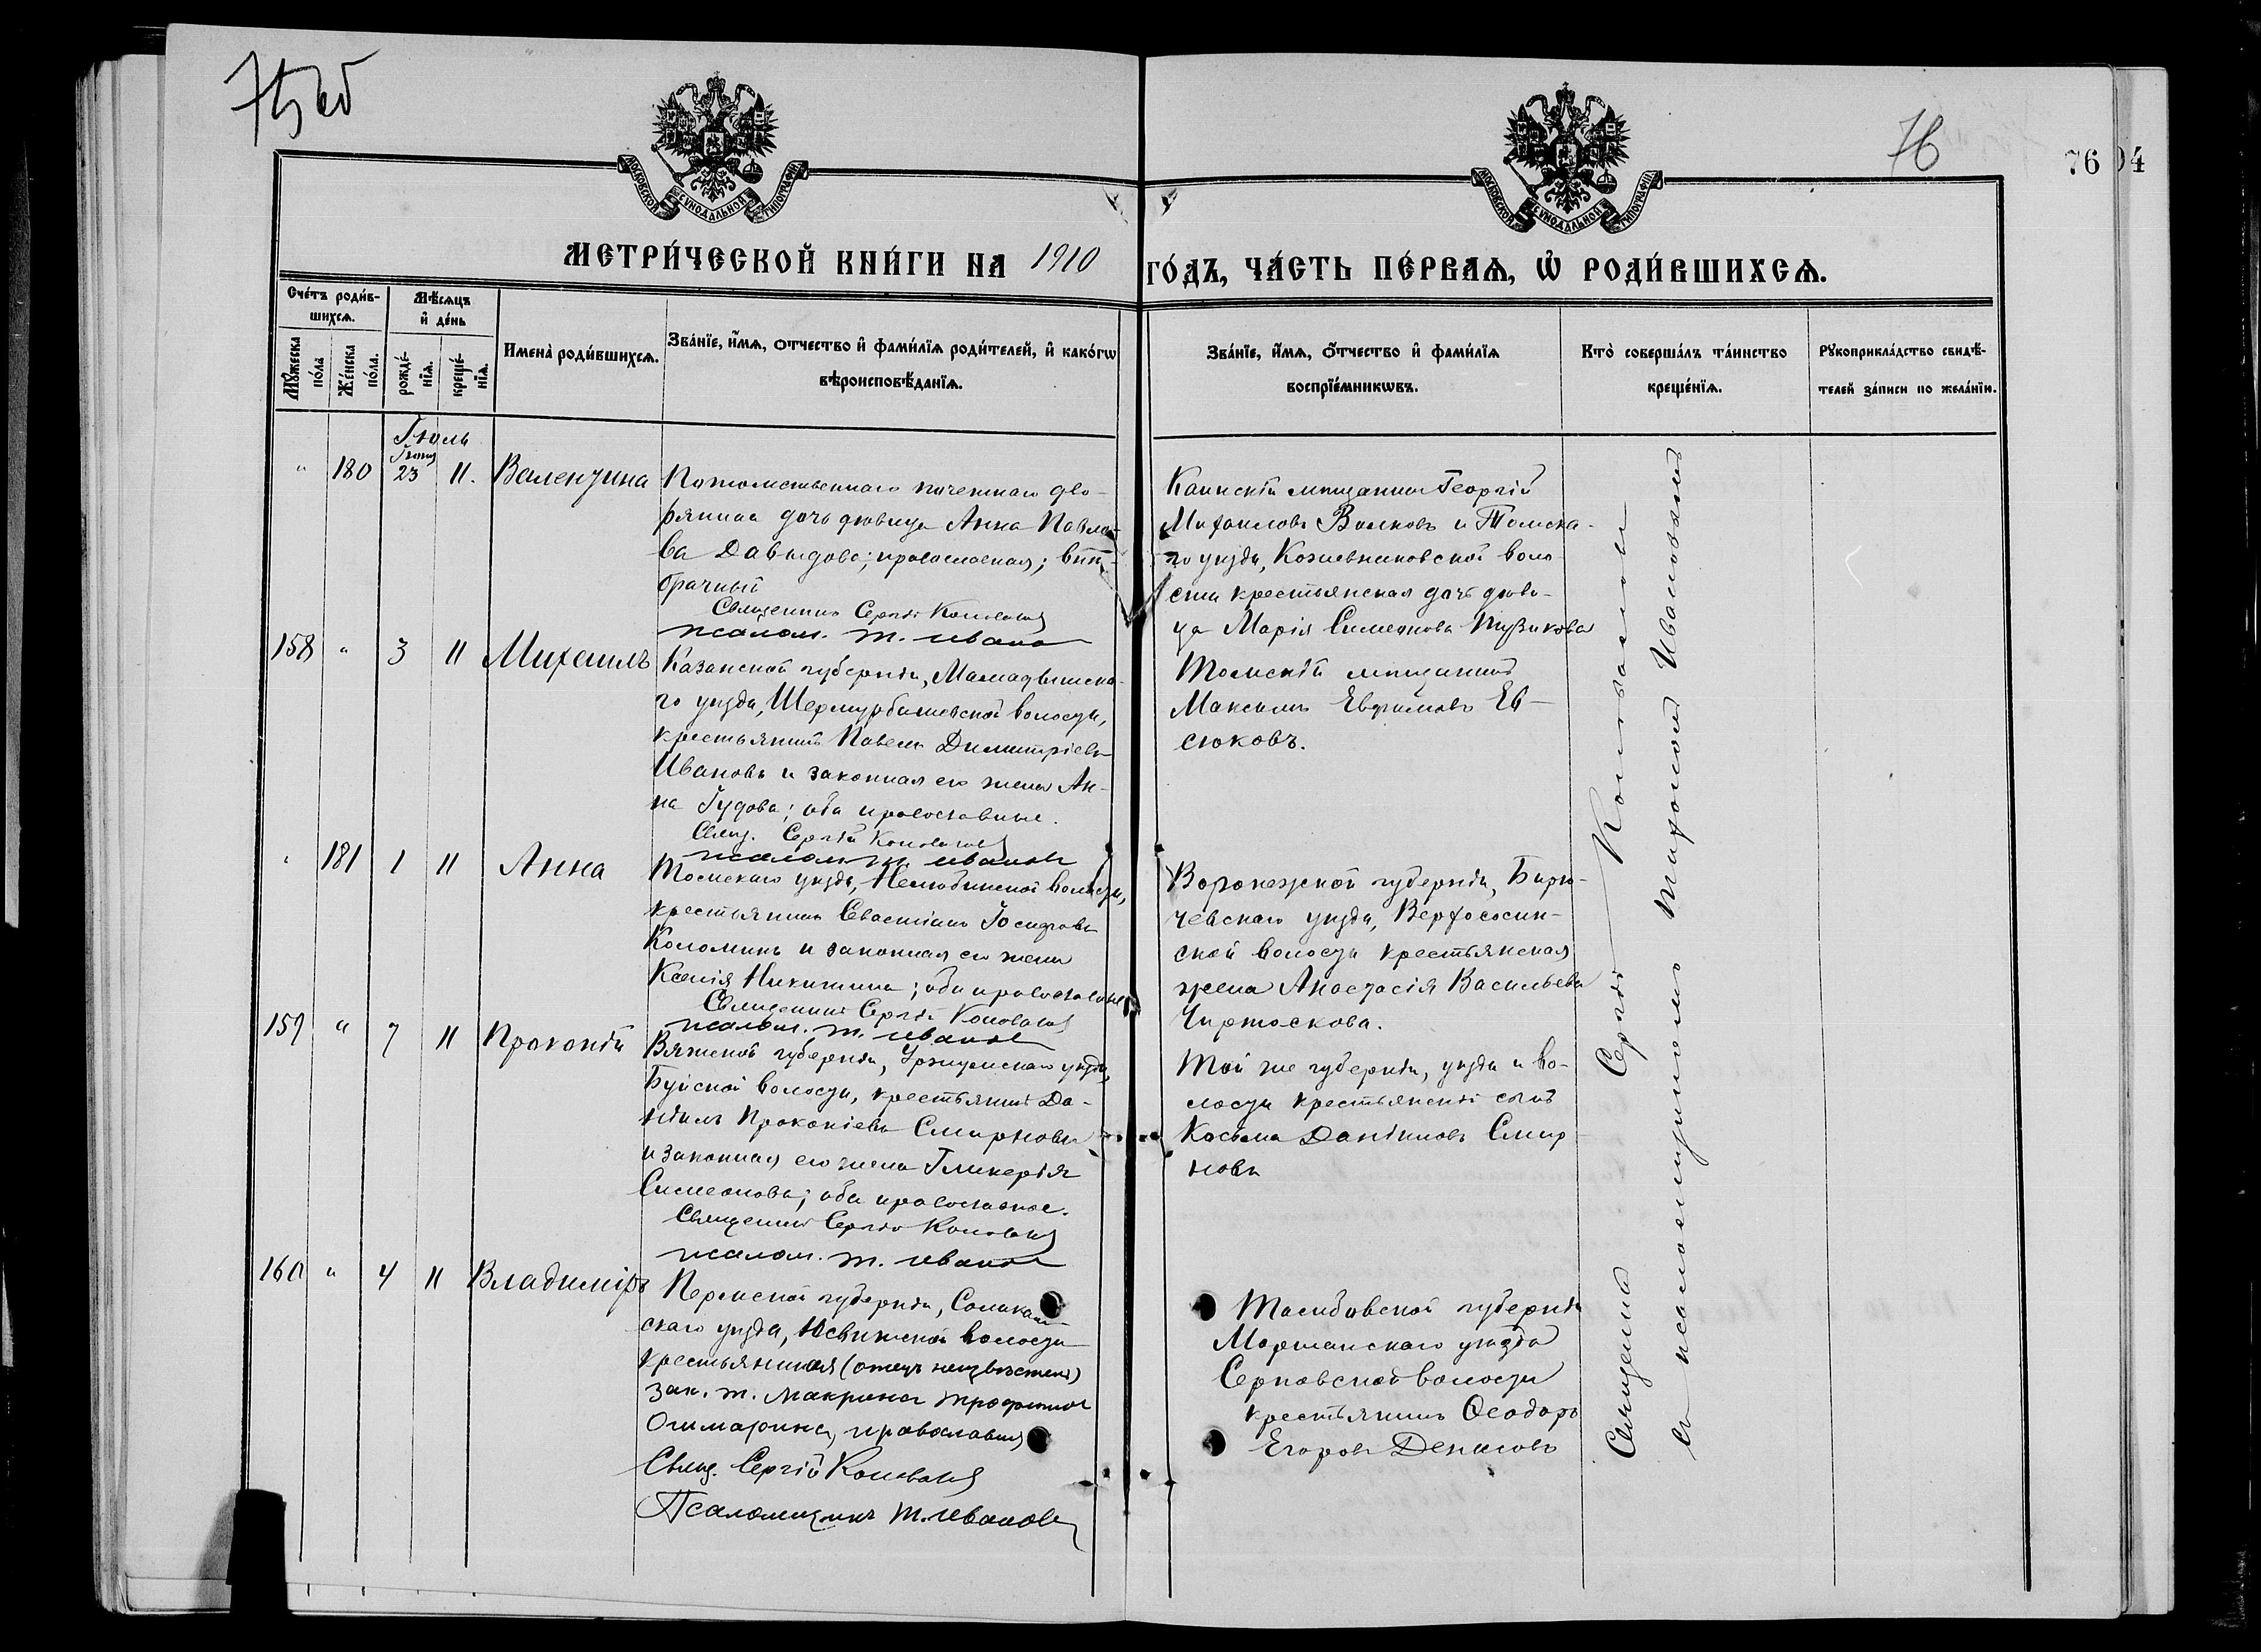 75об
76
76
94
МОСКОВСКОЙ СѴНОДАЛЬНОЙ ТИПОГРАФІИ
МОСКОВСКОЙ СѴНОДАЛЬНОЙ ТИПОГРАФІИ
МЕТРИ́ЧЕСКОЙ КНИ́ГИ НА 1910 ГО́ДЪ, ЧА́СТЬ ПЕ́РВАѦ, Ѡ҆ РОДИ́ВШИХСѦ.
Сче́тъ роди́в-
шихсѧ.
Мѣ́сѧцъ
и҆ де́нь
Мꙋ́жеска
по́ла
Же́нска
по́ла.
рожде́-
нїѧ.
креще́-
нїѧ.
Имена̀ роди́вшихсѧ.
Зва́нїе, и҆́мѧ, ѻ҆́тчество и҆ фами́лїѧ роди́телей, и҆ како́гѡ
вѣроисповѣ́данїѧ.
Зва́нїе, и҆́мѧ, ѻ҆́тчество и҆ фами́лїѧ
воспрїе́мникѡвъ.
Кто̀ соверша́лъ та́инство
креще́нїѧ.
Рꙋкоприкла́дство свидѣ́-
телей за́писи по жела́нїю.
Іюль
Іюня
" 180 23 11. Валентина
Потомственнаго почетнаго дво-
рянина дочь девица Анна Павло-
ва Давыдова; православная; внѣ-
брачный
Священникъ Сергій Коновалов
псалом. Т. Иванов
Каинскій мѣщанинъ Георгій
Михаиловъ Волковъ и Томска-
го уѣзда, Кожевниковской воло
сти крестьянская дочь дѣви-
ца Марія Симеонова Пузикова
158 " 3 11 Михаилъ
Казанской губерніи, Мамадышска-
го уѣзда, Шермурбашевской волости,
крестьянинъ Павелъ Димитріевъ
Ивановъ и законная его жена Ан-
на Гудова; оба православные.
Свящ. Сергій Коновалов
псалом. Т. Иванов
Томскій мѣщанинъ
Максимъ Евфимовъ Ев-
сюковъ.
" 181 1 11 Анна
Томскаго уѣзда, Нелюбинской волости,
крестьянинъ Севастіанъ Іосифовъ
Коломинъ и законная его жена
Ксенія Никитина; оба православные
Священникъ Сергій Коновалов
псалом. Т. Иванов
Воронежской губерніи, Бирю-
чевскаго уѣзда, Верхососен-
ской волости крестьянская
жена Анастасія Васильева
159 " 7 11 Прокопій
Вятской губерніи, Уржумскаго уѣзда,
Буйской волости, крестьянинъ Да-
ніилъ Прокопіевъ Смирновъ
и законная его жена Гликерія
Симеонова; оба православные.
Священникъ Сергій Коновалов
псалом. Т. Иванов
Той же губерніи, уѣзда и во-
лости крестьянскій сынъ
Косьма Даніиловъ Смир-
новъ
160 " 4 11 Владиміръ
Пермской губерніи, Соликам-
скаго уѣзда, Юсвинской волости
крестьянина (отецъ неизвѣстенъ)
зак. ж. Макрина Трофимов
православная
Свящ. Сергій Коновалов
Псаломщикъ Т. Иванов
Тамбовской губерніи
Моршанскаго уѣзда
Серповской волости
крестьянинъ Ѳеодоръ
Егоровъ Денисовъ
Священникъ Сергій Коновалов
съ псаломщикомъ Тихономъ Ивановымъ